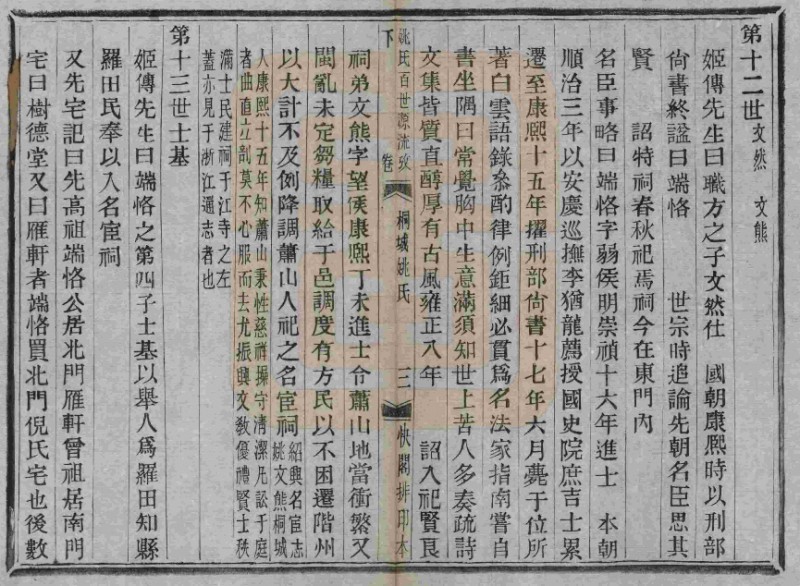 第十二世文然 文熊
姬傳先生曰職方之子文然仕 國朝康熙時以刑部
尙書終諡曰端恪 世宗時追論先朝名臣思其
賢 詔特祠春秋祀焉祠今在東門內
名臣事略曰端恪字弱侯明崇禎十六年進士 本朝
順治三年以安慶巡撫李猶龍薦授國史院庶吉士累
遷至康熙十五年擢刑部尙書十七年六月薨于位所
著白雲語錄叅酌律例鉅細必貫爲名法家指南嘗自
書坐隅曰常覺胸中生意滿須知世上苦人多奏疏詩
文集皆質直醇厚有古風雍正八年 詔入祀賢良
姚氏百世源流攷 卷下 桐城姚氏 三 快閣排印本
祠弟文熊字望侯康熙丁未進士令蕭山地當衝繁又
閩亂未定芻糧取給于邑調度有方民以不困遷階州
以大計不及例降調蕭山人祀之名宦祠紹興名宦志姚文熊桐城
人康熙十五年知蕭山秉性慈祥操守清潔凡訟于庭
者曲直立剖莫不心服而去尤振興文敎優禮賢士秩
滿士民建祠于江寺之左
蓋亦見于浙江通志者也
第十三世士基
姬傳先生曰端恪之第四子士基以舉人爲羅田知縣
羅田民奉以入名宦祠
又先宅記曰先高祖端恪公居北門雁軒曾祖居南門
宅曰樹德堂又曰雁軒者端恪買北門倪氏宅也後數